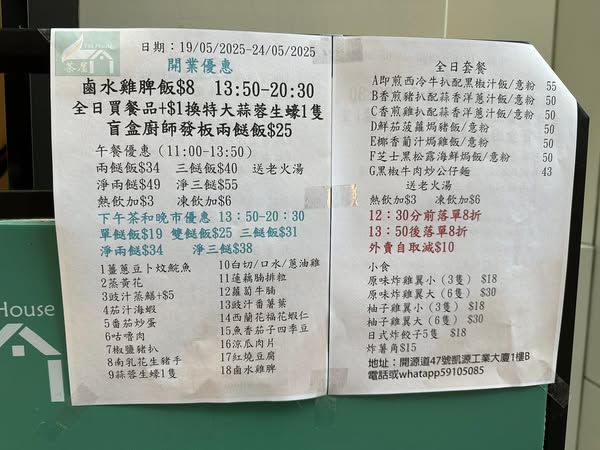 Tea House
茶屋
日期：19/05/2025-24/05/2025
開業優惠
鹵水雞脾飯$8 13:50-20:30
全日買餐品+$1換特大蒜蓉生蠔1隻
盲盒廚師發板兩餸飯$25
午餐優惠 (11:00-13:50)
兩餸飯$34 三餸飯$40 送老火湯
淨兩餸$49 淨三餸$55
熱飲加$3 凍飲加$6
下午茶和晚市優惠 13:50-20:30
單餸飯$19 雙餸飯$25 三餸飯$31
淨兩餸$34 淨三餸$38
1薑蔥豆卜炆鯇魚
2蒸黃花
3豉汁蒸鱔+$5
4茄汁海蝦
5番茄炒蛋
6咕嚕肉
7椒鹽豬扒
8南乳花生豬手
9蒜蓉生蠔1隻
10白切/口水/蔥油雞
11蓮藕腩排粒
12蘿蔔牛腩
13豉汁番薯葉
14西蘭花福花蝦仁
15魚香茄子四季豆
16涼瓜肉片
17紅燒豆腐
18鹵水雞脾
全日套餐
A即煎西冷牛扒配黑椒汁飯/意粉 55
B香煎豬扒配蒜香洋蔥汁飯/意粉 50
C香煎雞扒配蒜香洋蔥汁飯/意粉 50
D鮮茄菠蘿焗豬飯/意粉 50
E椰香葡汁焗雞飯/意粉 50
F芝士黑松露海鮮焗飯/意粉 50
G黑椒牛肉炒公仔麵 43
送老火湯
熱飲加$3 凍飲加$6
12:30分前落單8折
13:50後落單8折
外賣自取減$10
小食
原味炸雞翼小（3隻） $18
原味炸雞翼大（6隻） $30
柚子雞翼小（3隻） $18
柚子雞翼大（6隻） $30
日式炸餃子5隻 $18
炸薯角$15
地址：開源道47號凱源工業大廈1樓B
電話或whatapp59105085
House